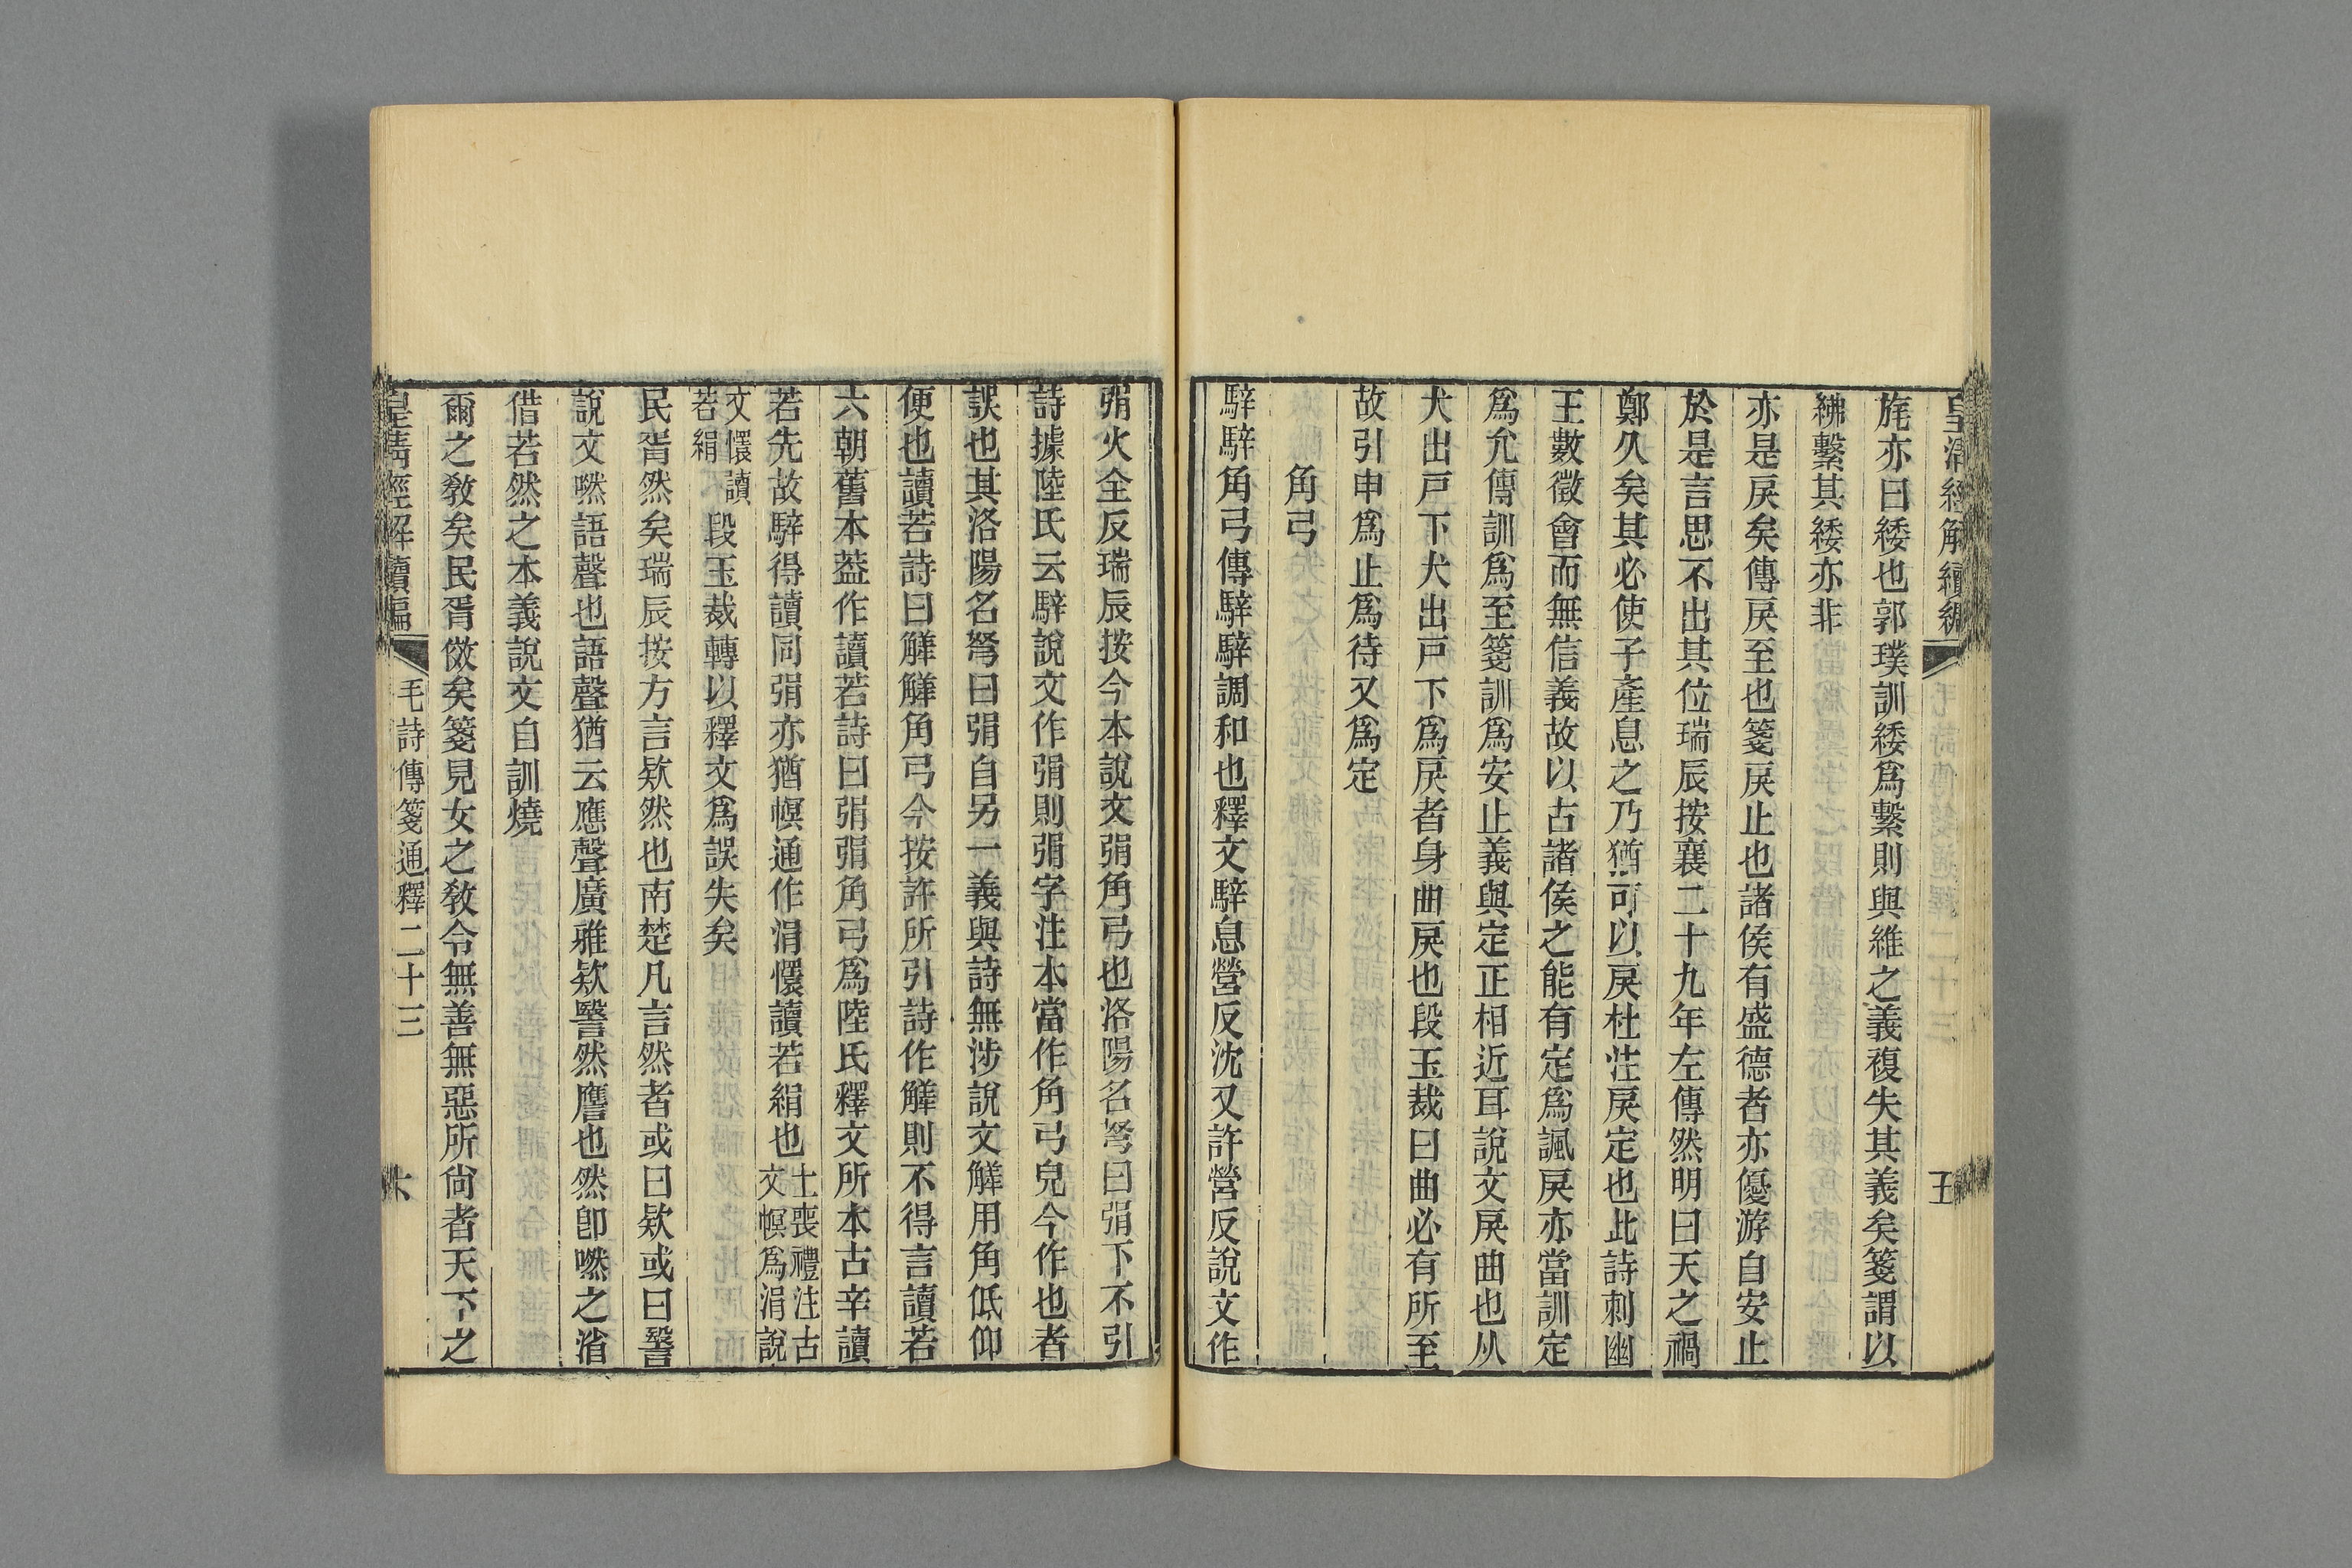 皇清經解續編
毛詩傳箋通釋二十三
五
旄亦曰緌也郭璞訓緌爲繫則與維之義複失其義矣箋謂以
紼繫其緌亦非
亦是戾矣傳戾至也箋戾止也諸侯有盛德者亦優游自安止
於是言思不出其位瑞辰按襄二十九年左傳然明曰天之禍
鄭久矣其必使子產息之乃猶可以戾杜注戾定也此詩刺幽
王數徵會而無信義故以古諸侯之能有定爲諷戾亦當訓定
爲允傳訓爲至箋訓爲安止義與定正相近耳說文戾曲也从
犬出戸下犬出戸下爲戾者身曲戾也段玉裁曰曲必有所至
故引申爲止爲待又爲定
角弓
騂騂角弓傳騂騂調和也釋文騂息營反沈又許營反說文作
弲火全反瑞辰按今本說文弲角弓也洛陽名弩曰弲下不引
詩據陸氏云騂說文作弲則弲字注本當作角弓皃今作也者
誤也其洛陽名弩曰弲自另一義與詩無涉說文觲用角低仰
便也讀若詩曰觲觲角弓今按許所引詩作觲則不得言讀若
六朝舊本葢作讀若詩曰弲弲角弓爲陸氏釋文所本古辛讀
若先故騂得讀同弲亦猶幎通作涓懁讀若絹也士喪禮注古文幎爲涓說
文懁讀若絹段玉裁轉以釋文爲誤失矣
民胥然矣瑞辰按方言欸然也南楚凡言然者或曰欸或曰䃜
說文嘫語聲也語聲猶云應聲廣雅欸䃜然譍也然卽嘫之渻
借若然之本義說文自訓燒
爾之敎矣民胥傚矣箋見女之敎令無善無惡所尙者天下之
皇淸經解續編
毛詩傳箋通釋二十三
六